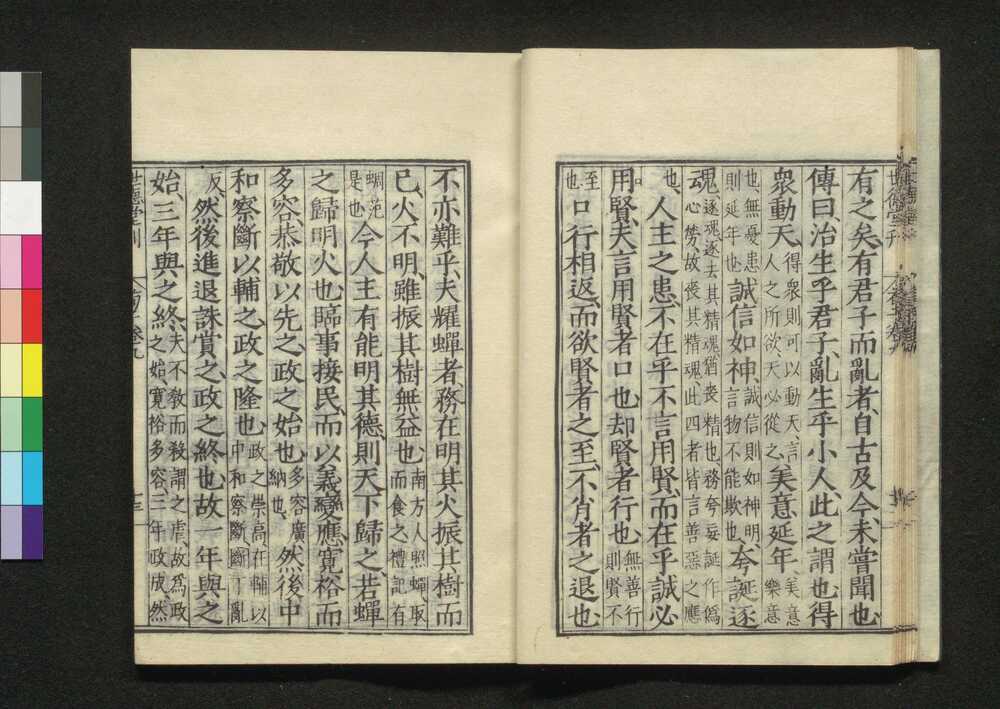 有之矣有君子而亂者自古及今未嘗聞也
傳曰治生乎君子亂生乎小人此之謂也得
衆動天得衆則可以動天言人之所欲天必從之美意延年美意樂意
也無憂患則延年也誠信如神誠信則如神明言物不能欺也夸誕逐
魂逐魂逐去其精魂猶喪精也務夸妄誕作僞心勞故喪其精魂此四者皆言善惡之應
也人主之患不在乎不言用賢而在乎誠必
用賢夫言用賢者口也却賢者行也無善行則賢不
至也口行相返而欲賢者之至不肖者之退也
不亦難乎夫耀蟬者務在明其火振其樹而
已火不明雖振其樹無益也南方人照蟬取而食之禮記有
蜩范是也今人主有能明其德則天下歸之若蟬
之歸明火也臨事接民而以義變應寬裕而
多容恭敬以先之政之始也多容廣納也然後中
和察斷以輔之政之隆也政之崇高在輔以中和察斷斷丁亂
反然後進退誅賞之政之終也故一年與之
始三年與之終夫不敎而殺謂之虐故爲政之始寬裕多容三年政成然
世德堂刊
卷九